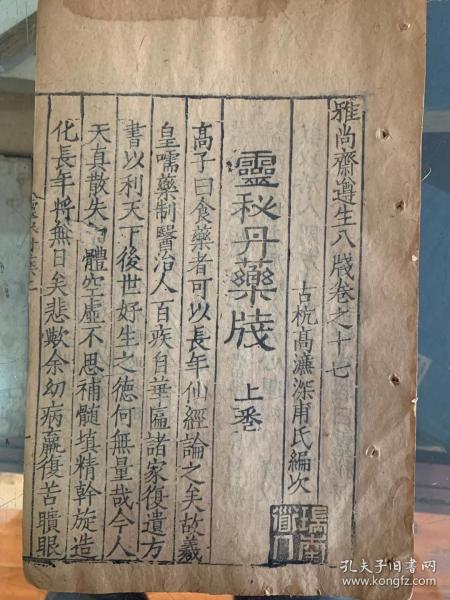 雅尚齋遵生八牋卷之十七
古杭高濂深甫氏編次
靈秘丹藥牋 上卷
高子曰食藥者可以長年仙經論之矣故羲
皇嚐藥制醫治人百疾自華扁諸家復遺方
書以利天下後世好生之德何無量哉今人
天真散失 體空虛不思補髓填精斡旋造
化長年將無日矣悲歟余幼病羸復苦瞶眼
孔夫子旧书网
www.kongfz.com